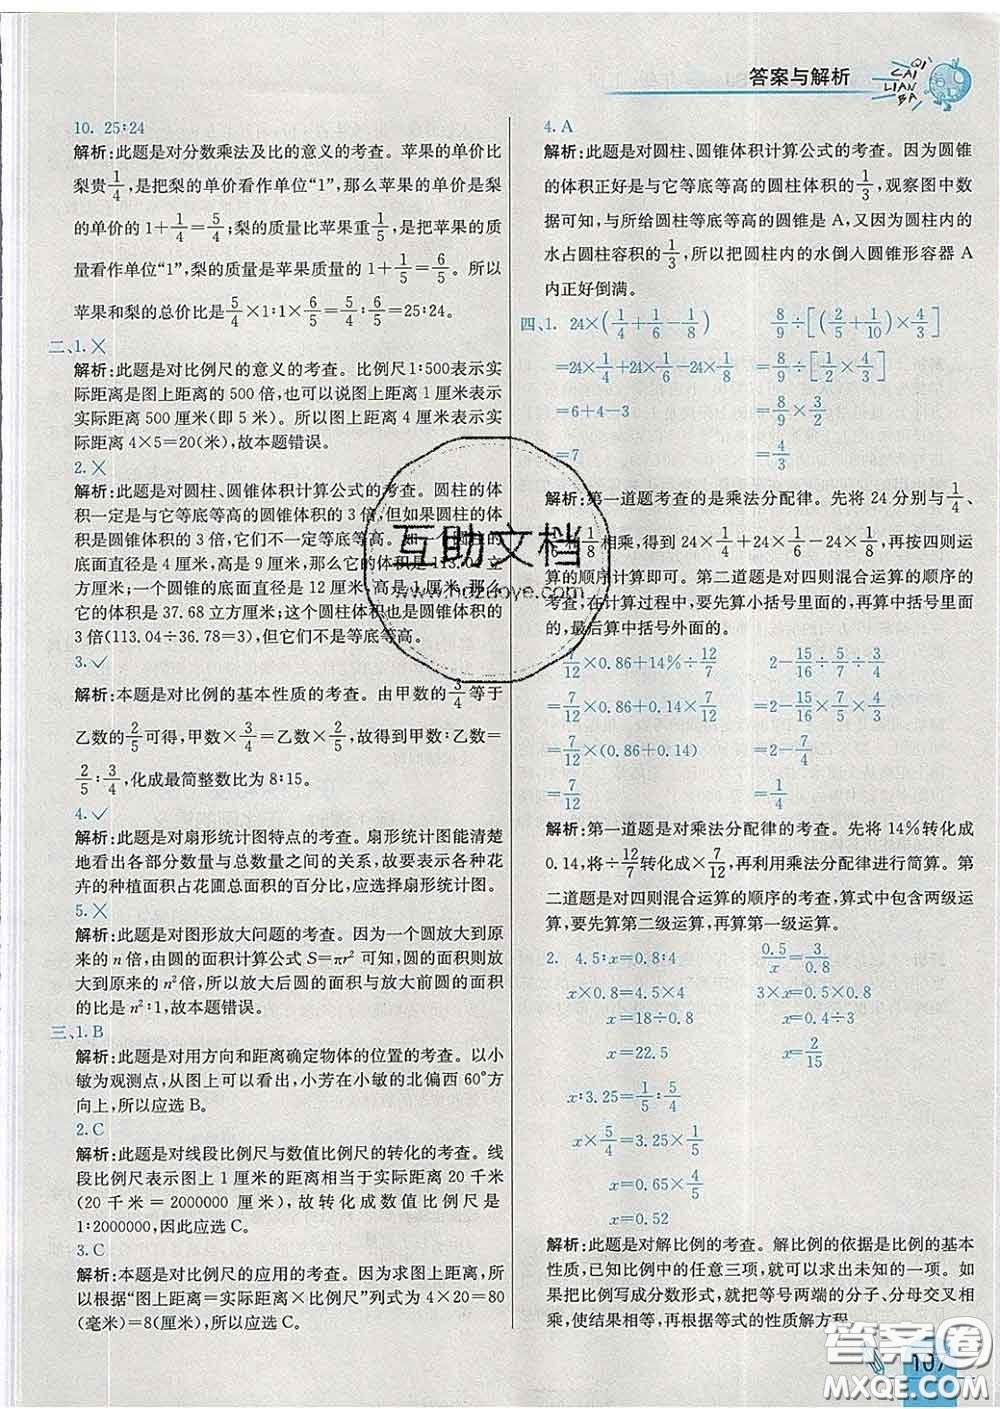 答案与解析
QI
CAI
LIAN
BA
10. 25∶24
解析:此题是对分数乘法及比的意义的考查。苹果的单价比
梨贵1/4,是把梨的单价看作单位“1”,那么苹果的单价是梨
的单价的 1+1/4=5/4;梨的质量比苹果重1/5,是把苹果的质
量看作单位“1”,梨的质量是苹果质量的 1+1/5=6/5。所以
苹果和梨的总价比是5/4×1∶1×6/5=5/4∶6/5=25∶24。
二、1.×
解析:此题是对比例尺的意义的考查。比例尺1∶500表示实
际距离是图上距离的 500 倍,也可以说图上距离 1 厘米表示
实际距离 500 厘米(即 5 米)。所以图上距离 4 厘米表示实
际距离 4×5=20(米),故本题错误。
2.×
解析:此题是对圆柱、圆锥体积计算公式的考查。圆柱的体
积一定是与它等底等高的圆锥体积的 3 倍,但如果圆柱的体
积是圆锥体积的 3 倍,它们不一定等底等高。如一个圆柱的
底面直径是 4 厘米,高是 9 厘米,那么它的体积是 113.04 立
方厘米;一个圆锥的底面直径是 12 厘米,高是 1 厘米,那么
它的体积是 37.68 立方厘米;这个圆柱体积也是圆锥体积的
3 倍(113.04÷36.78=3),但它们不是等底等高。
3.✓
解析:本题是对比例的基本性质的考查。由甲数的3/4等于
乙数的2/5可得,甲数×3/4=乙数×2/5,故得到甲数∶乙数=
2/5∶3/4,化成最简整数比为 8∶15。
4.✓
解析:此题是对扇形统计图特点的考查。扇形统计图能清楚
地看出各部分数量与总数量之间的关系,故要表示各种花
卉的种植面积占花圃总面积的百分比,应选择扇形统计图。
5.×
解析:此题是对图形放大问题的考查。因为一个圆放大到原
来的 n 倍,由圆的面积计算公式 S=πr² 可知,圆的面积则放
大到原来的 n² 倍,所以放大后圆的面积与放大前圆的面积
的比是 n²∶1,故本题错误。
三、1. B
解析:此题是对用方向和距离确定物体的位置的考查。以小
敏为观测点,从图上可以看出,小芳在小敏的北偏西 60°方
向上,所以应选 B。
2. C
解析:此题是对线段比例尺与数值比例尺的转化的考查。线
段比例尺表示图上 1 厘米的距离相当于实际距离 20 千米
(20 千米 = 2000000 厘米),故转化成数值比例尺是
1∶2000000,因此应选 C。
3. C
解析:本题是对比例尺的应用的考查。因为求图上距离,所
以根据“图上距离=实际距离×比例尺”列式为 4×20=80
(毫米)=8(厘米),所以应选 C。
4. A
解析:此题是对圆柱、圆锥体积计算公式的考查。因为圆锥
的体积正好是与它等底等高的圆柱体积的1/3,观察图中数
据可知,与所给圆柱等底等高的圆锥是 A,又因为圆柱内的
水占圆柱容积的1/3,所以把圆柱内的水倒入圆锥形容器 A
内正好倒满。
四、1. 24×(1/4+1/6-1/8) 8/9÷[(2/5+1/10)×4/3]
=24×1/4+24×1/6-24×1/8 =8/9÷[1/2×4/3]
=6+4-3 =8/9×3/2
=7 =4/3
解析:第一道题考查的是乘法分配律。先将 24 分别与1/4、
1/6、1/8相乘,得到 24×1/4+24×1/6-24×1/8,再按照四则运
算的顺序计算即可。第二道题是对四则混合运算的顺序的
考查,在计算过程中,要先算小括号里面的,再算中括号里面
的,最后算中括号外面的。
7/12×0.86+14%÷12/7 2-15/16÷5/7÷3/4
=7/12×0.86+0.14×7/12 =2-15/16×7/5×4/3
=7/12×(0.86+0.14) =2-7/4
=7/12 =1/4
解析:第一道题是对乘法分配律的考查。先将 14%转化成
0.14,将÷12/7转化成×7/12,再利用乘法分配律进行简算。第
二道题是对四则混合运算的顺序的考查,算式中包含两级运
算,要先算第二级运算,再算第一级运算。
2. 4.5∶x=0.8∶4 0.5/x=3/0.8
x×0.8=4.5×4 3×x=0.5×0.8
x=18÷0.8 x=0.4÷3
x=22.5 x=2/15
x∶3.25=1/5∶5/4
x×5/4=3.25×1/5
x=0.65×4/5
x=0.52
解析:此题是对解比例的考查。解比例的依据是比例的基本
性质,已知比例中的任意三项,就可以求出未知的一项。如
果把比例写成分数形式,就把等号两端的分子、分母交叉相
乘,使结果相等,再根据等式的性质解方程。
互助文档
www.hdzuoye.com
答案圈
MXQE.COM